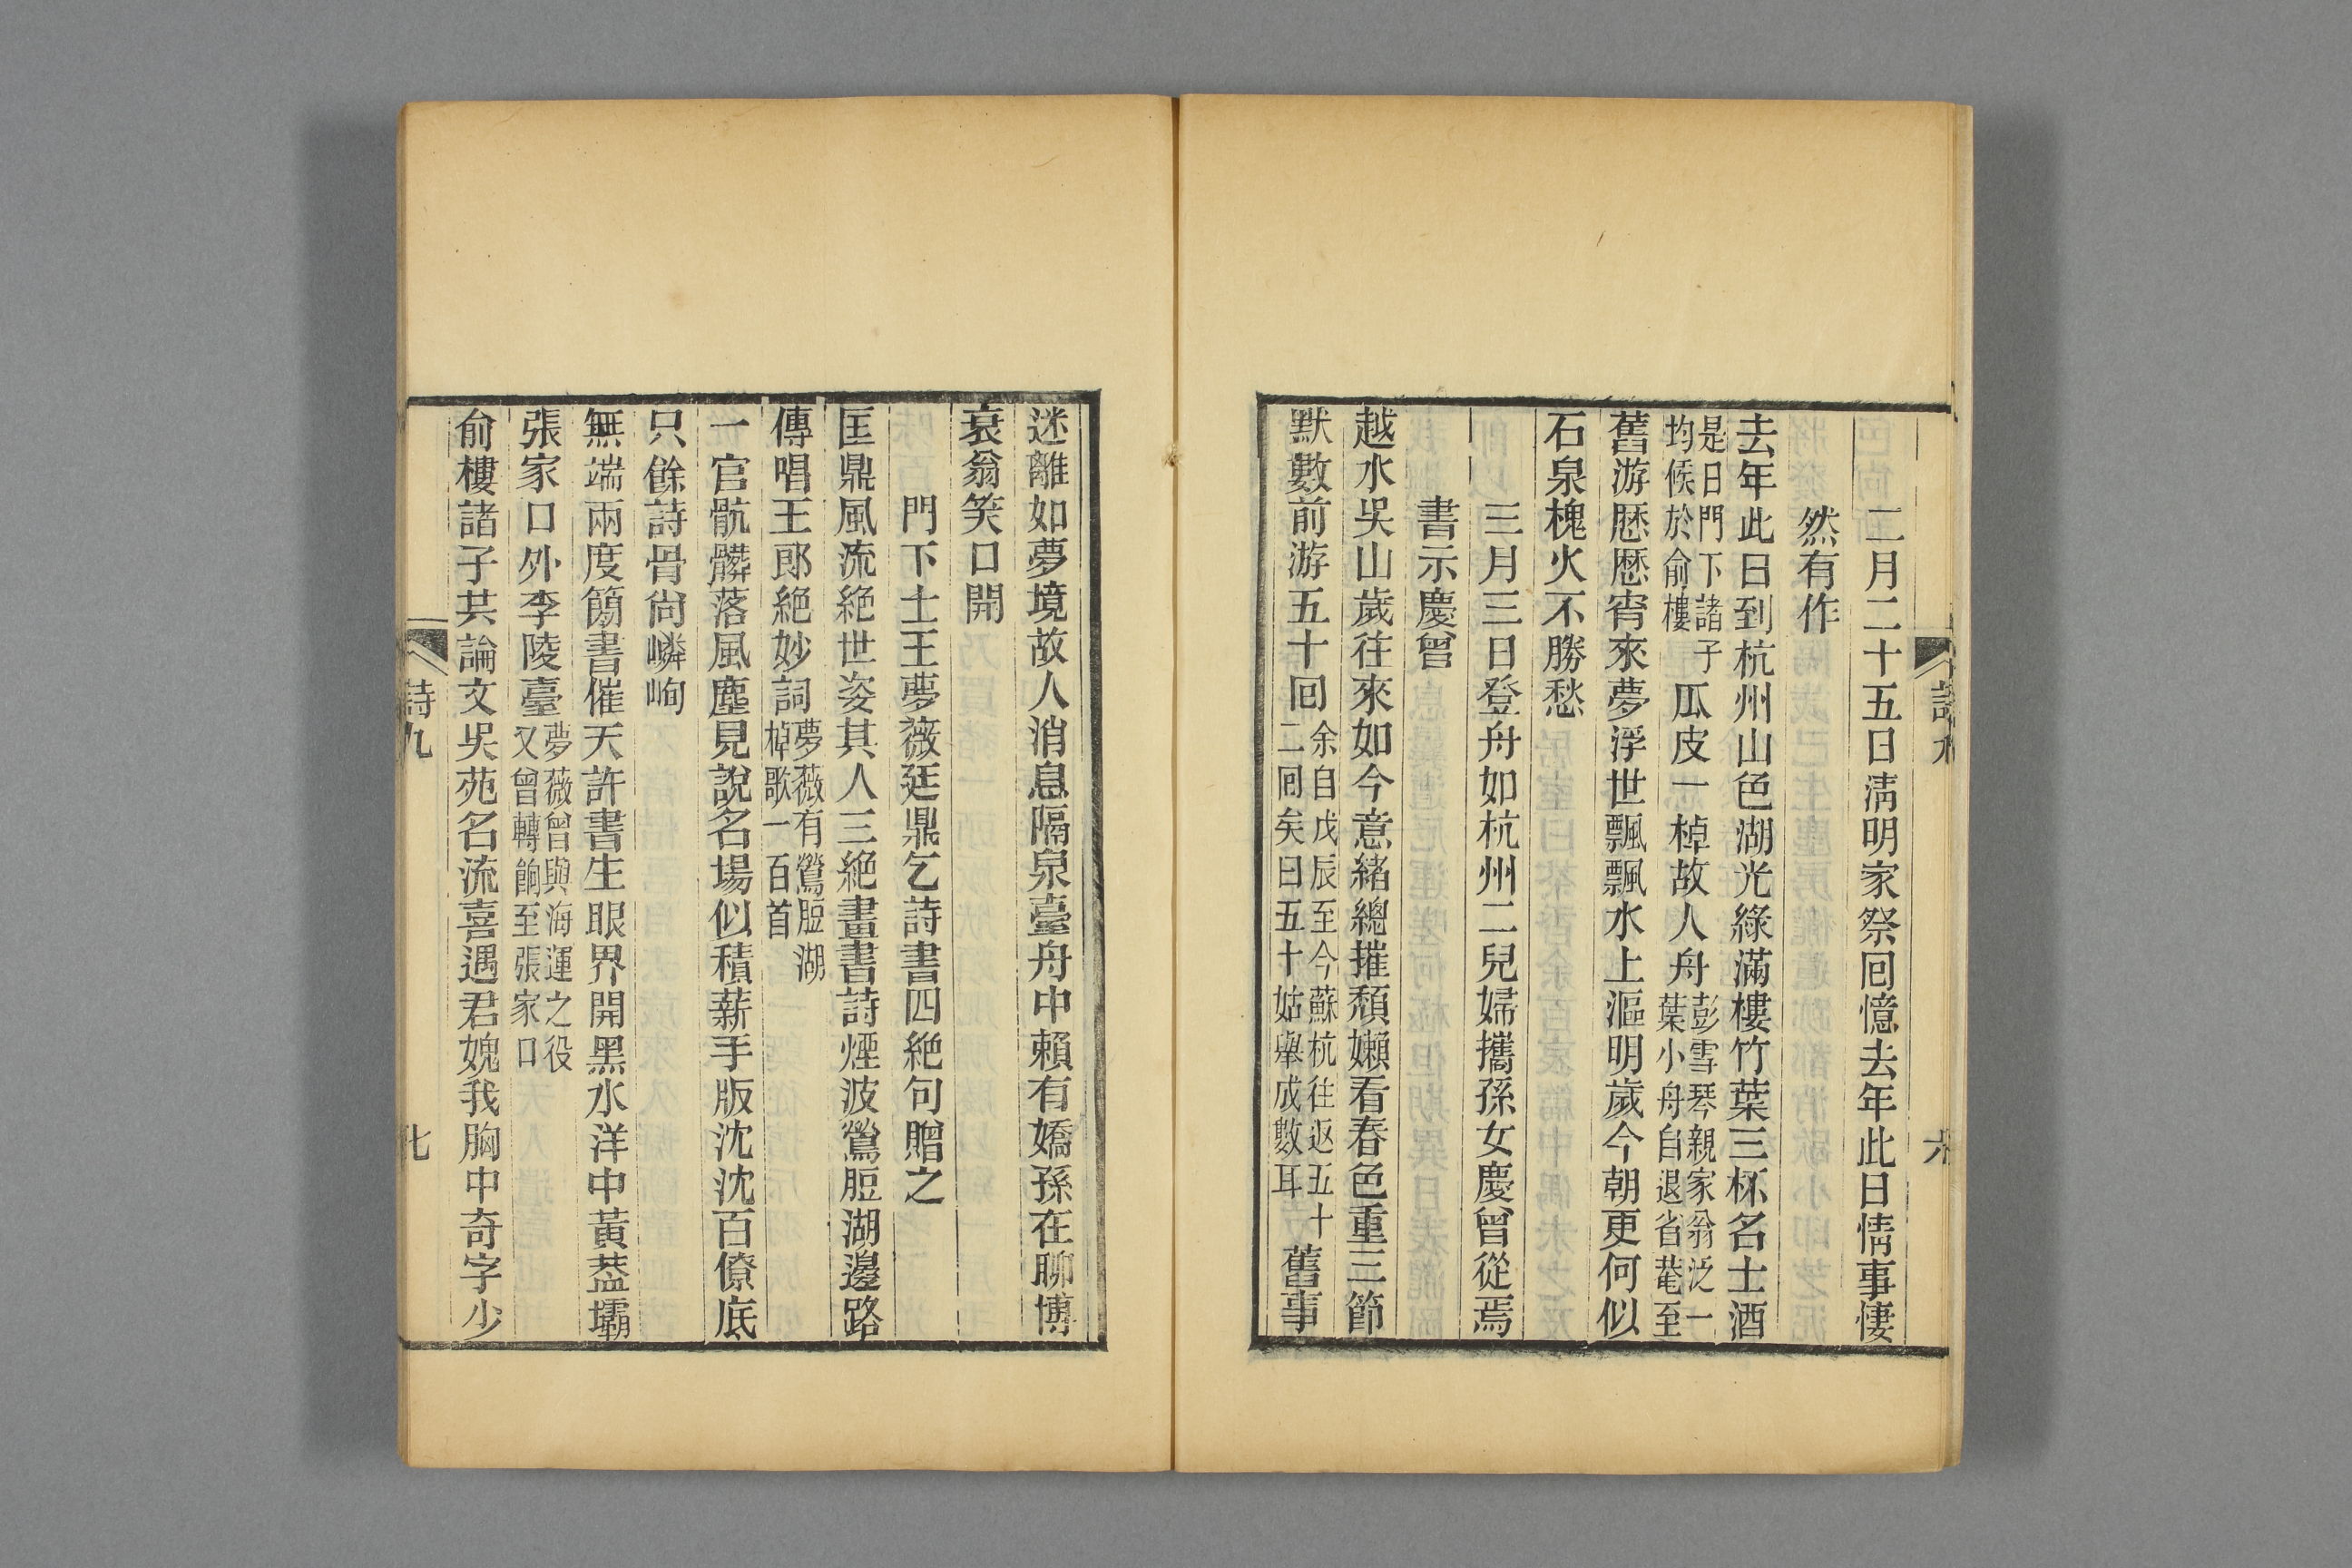 二月二十五日淸明家祭囘憶去年此日情事悽
然有作
去年此日到杭州山色湖光綠滿樓竹葉三杯名士酒
是日門下諸子
均候於俞樓
瓜皮一棹故人舟
彭雪琴親家翁泛一
葉小舟自退省菴至
舊游歷歷宵來夢浮世飄飄水上漚明歲今朝更何似
石泉槐火不勝愁
三月三日登舟如杭州二兒婦攜孫女慶曾從焉
書示慶曾
越水吳山歲往來如今意緒總摧頹嬾看春色重三節
默數前游五十囘
余自戊辰至今蘇杭往返五十
二囘矣曰五十姑舉成數耳
舊事
迷離如夢境故人消息隔泉臺舟中賴有嬌孫在聊博
衰翁笑口開
門下士王夢薇廷鼎乞詩書四絕句贈之
匡鼎風流絕世姿其人三絕畫書詩煙波鶯脰湖邊路
傳唱王郎絕妙詞
夢薇有鶯脰湖
棹歌一百首
一官骯髒落風塵見說名場似積薪手版沈沈百僚底
只餘詩骨尙嶙峋
無端兩度簡書催天許書生眼界開黑水洋中黃葢壩
張家口外李陵臺
夢薇曾與海運之役
又曾轉餉至張家口
俞樓諸子共論文吳苑名流喜遇君媿我胸中奇字少
詩九
七